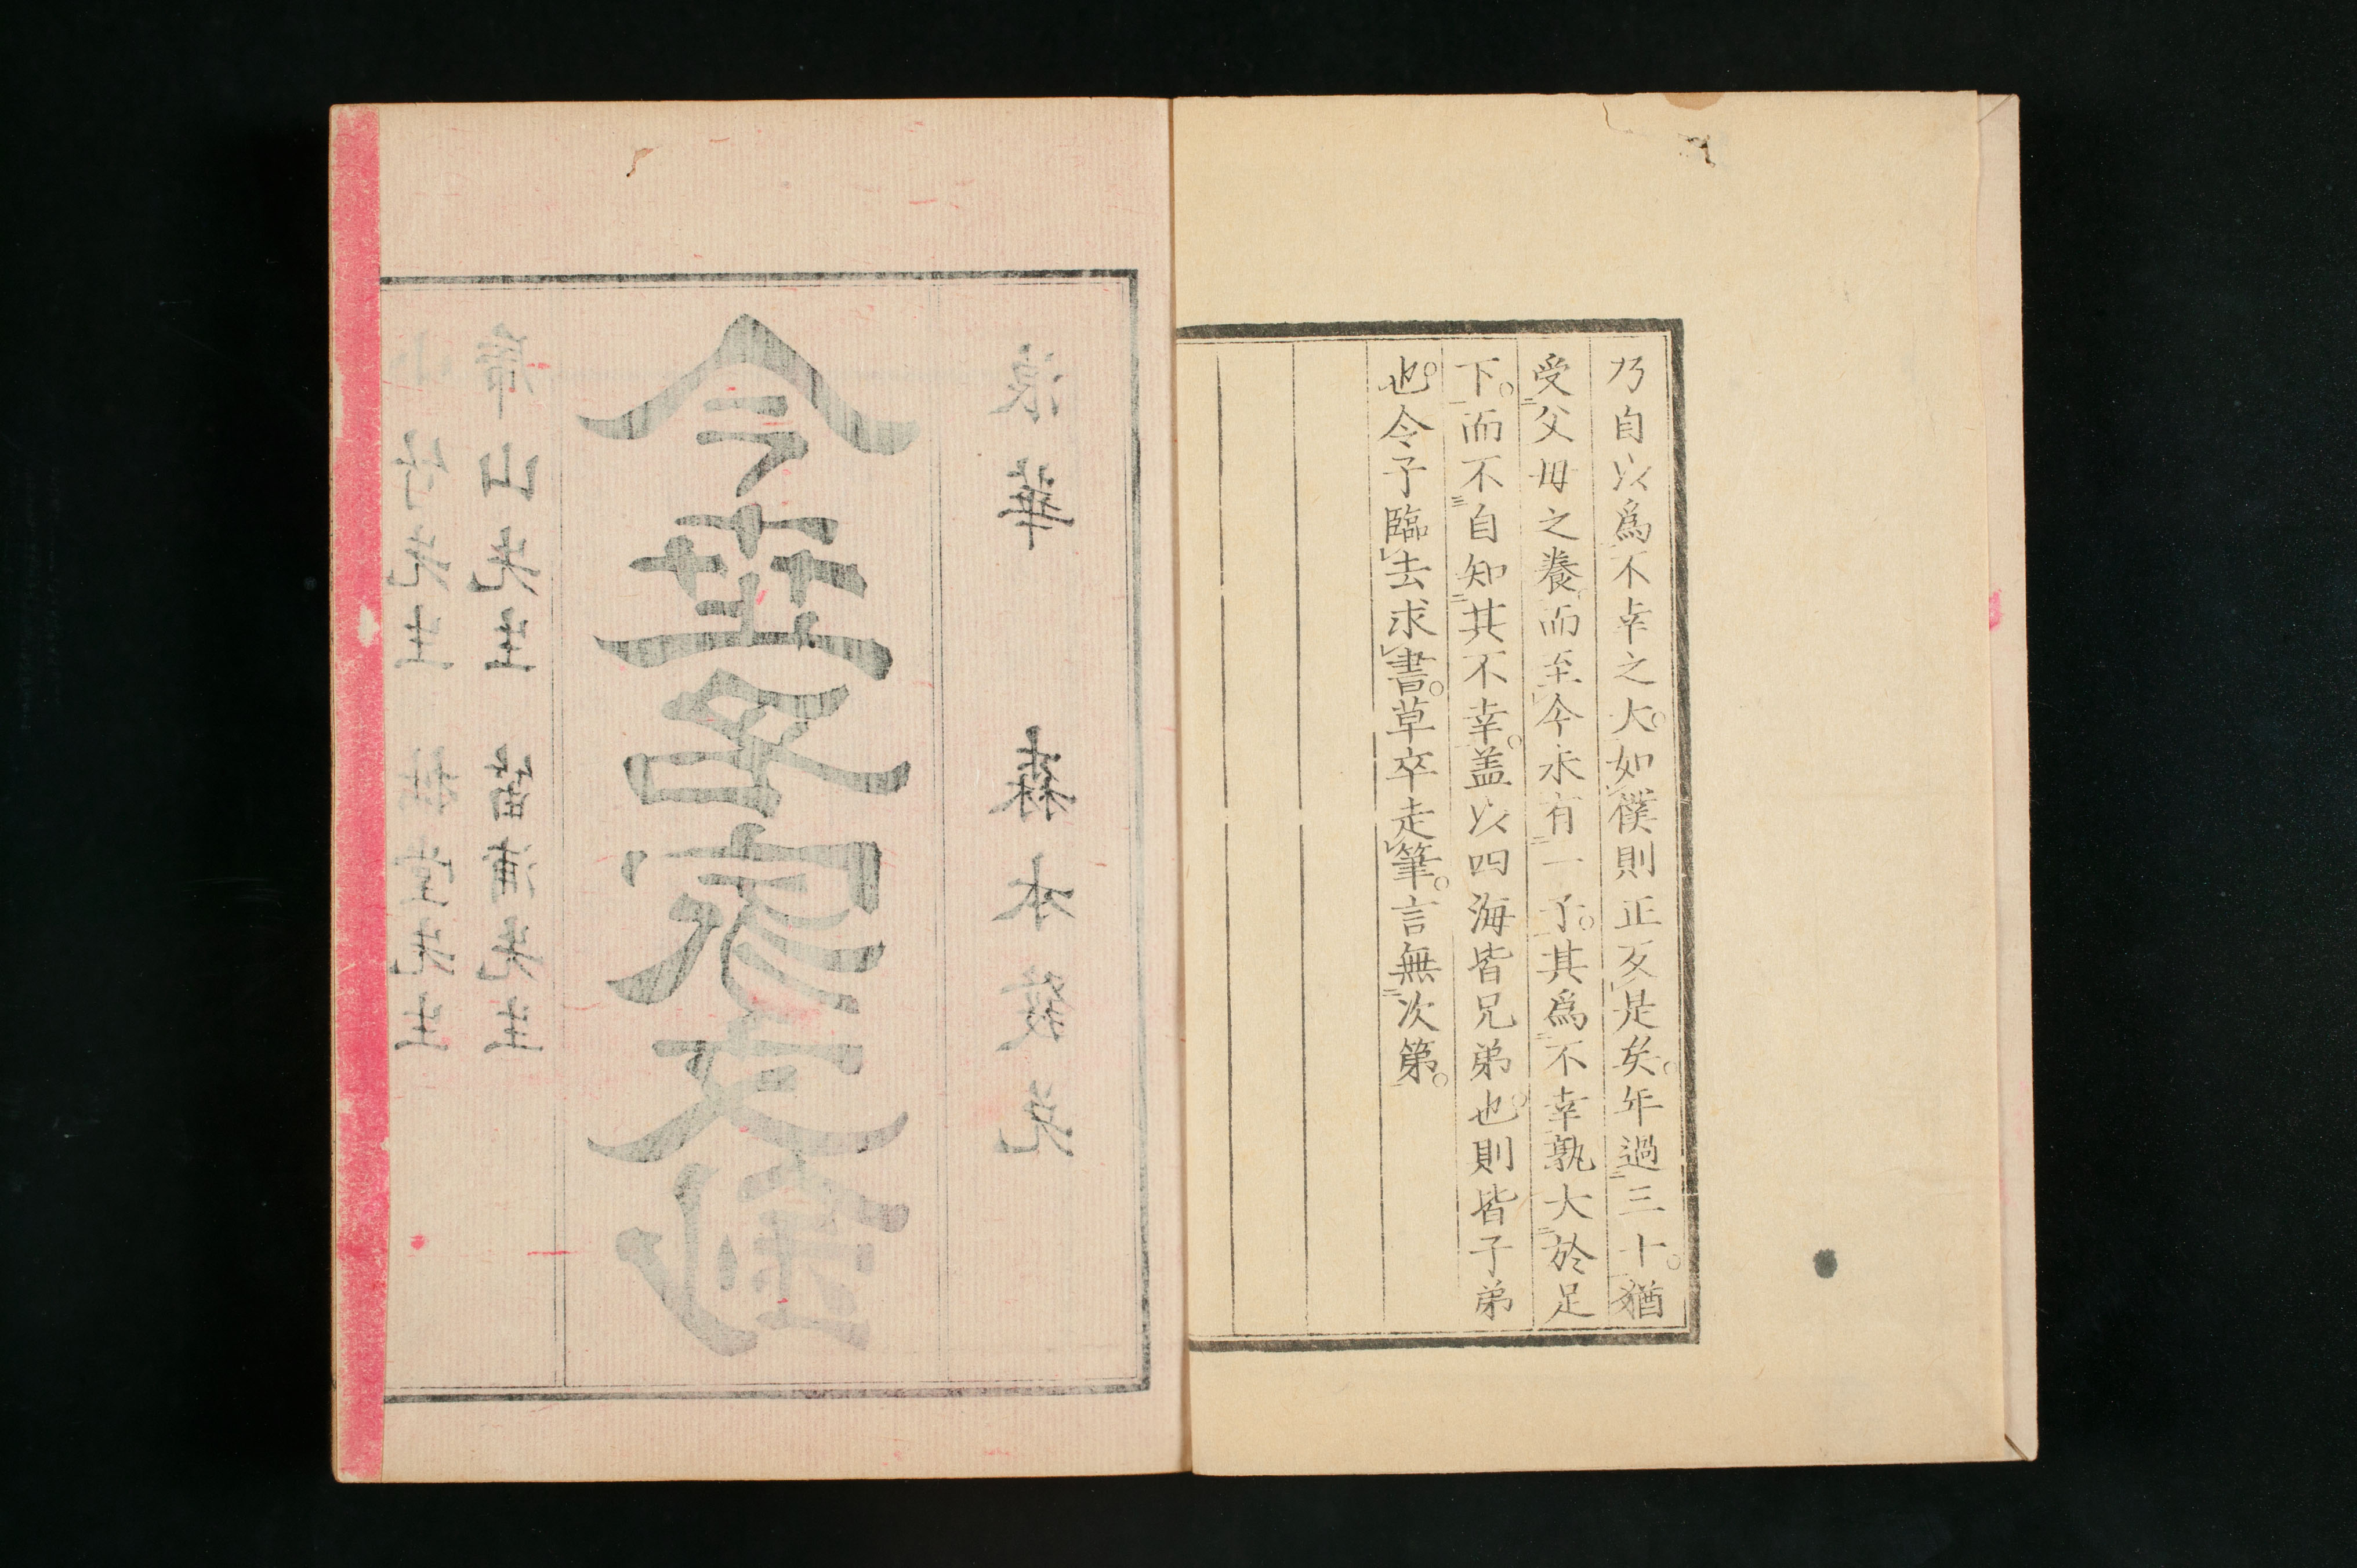 乃自以爲不幸之大。如僕則正反是矣。年過三十。猶
受父母之養。而至今未有一子。其爲不幸孰大於足
下。而不自知其不幸。蓋以四海皆兄弟也。則皆子弟
也。令子臨去求書。草卒走筆。言無次第。
小竹先生 拙堂先生
虎山先生 笛浦先生
今世名家文鈔
浪華 森本發兌